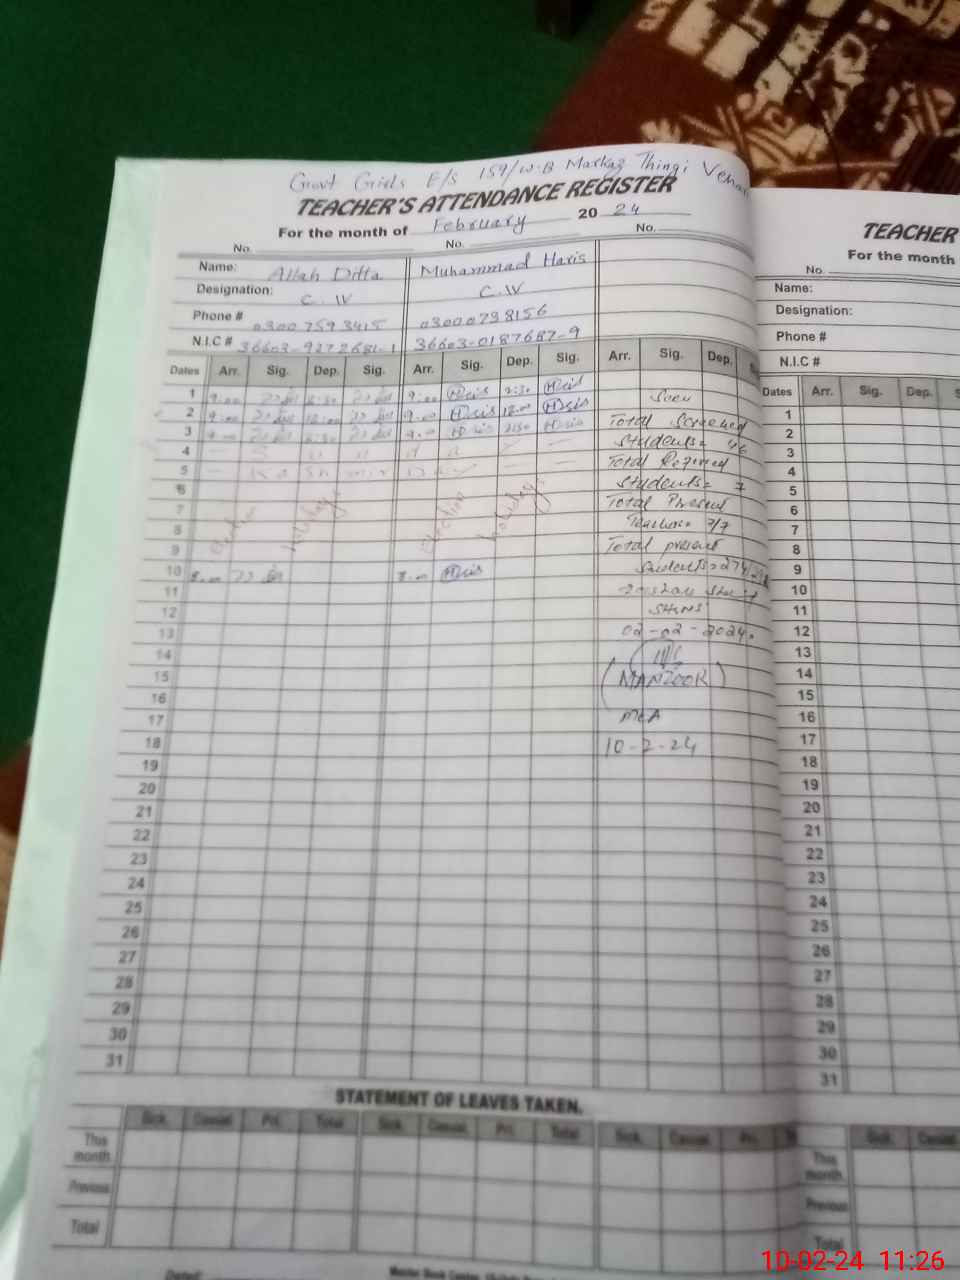 Govt Girls E/S 159/W.B Markaz Thingi
TEACHER'S ATTENDANCE REGISTER
For the month of February 20 24
No. No. No.
Name: Allah Ditta Muhammad Haris
Designation: C.IV C.IV
Phone # 03007593415 03000798156
N.I.C # 36603-9272681-1 36603-0187687-9
Dates Arr. Sig. Dep. Sig. Arr. Sig. Dep. Sig. Arr. Sig. Dep.
1 9:00 9:00 Haris Haris Seen
2 9:00 12:00 9:00 Haris 12:00 Haris Total Screened
3 9:00 9:00 Haris Haris Students= 46
4 - S u n d a y - Total Refered
5 - Kashmir Day - Students= 7
6 Total Present
7 Election Holiday Election Holiday Teachers= 7/7
8 Total present
9 Students=274
10 8:00 8:00 Haris
11 SH&NS
12 02-02-2024.
13
14 (MANZOOR)
15
16 MEA
17 10-2-24
18
19
20
21
22
23
24
25
26
27
28
29
30
31
STATEMENT OF LEAVES TAKEN.
Sick. Casual. Pri. Total Sick. Casual. Pri. Total Sick. Casual. Pri.
This month.
Previous
Total
TEACHER
For the month
No.
Name:
Designation:
Phone #
N.I.C #
Dates Arr. Sig. Dep.
1
2
3
4
5
6
7
8
9
10
11
12
13
14
15
16
17
18
19
20
21
22
23
24
25
26
27
28
29
30
31
Sick. Casual.
This month.
Previous
Total
10-02-24 11:26